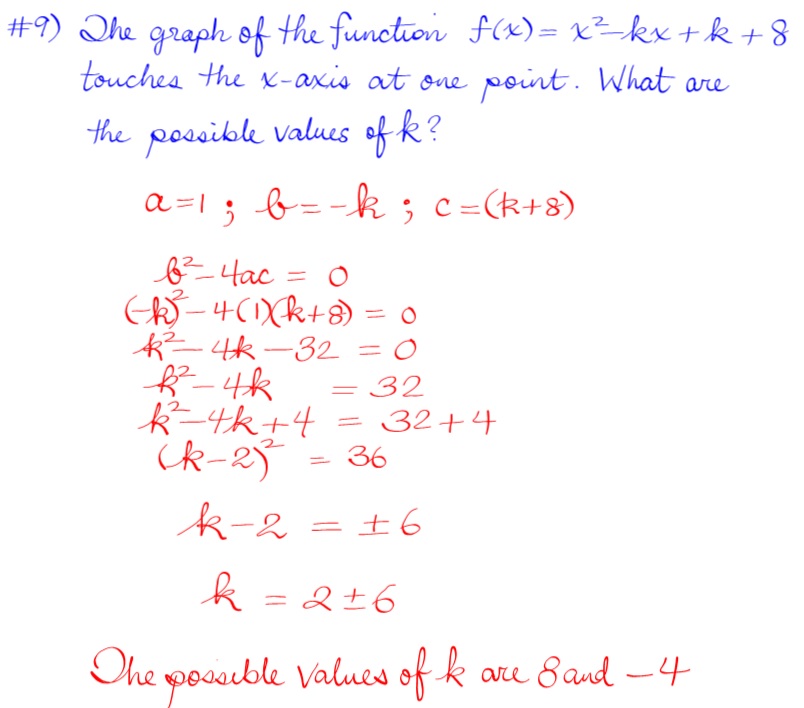 #9) The graph of the function f(x) = x² - kx + k + 8
touches the x-axis at one point. What are
the possible values of k?
a = 1 ; b = -k ; c = (k+8)
b² - 4ac = 0
(-k)² - 4(1)(k+8) = 0
k² - 4k - 32 = 0
k² - 4k = 32
k² - 4k + 4 = 32 + 4
(k-2)² = 36
k - 2 = ± 6
k = 2 ± 6
The possible values of k are 8 and -4